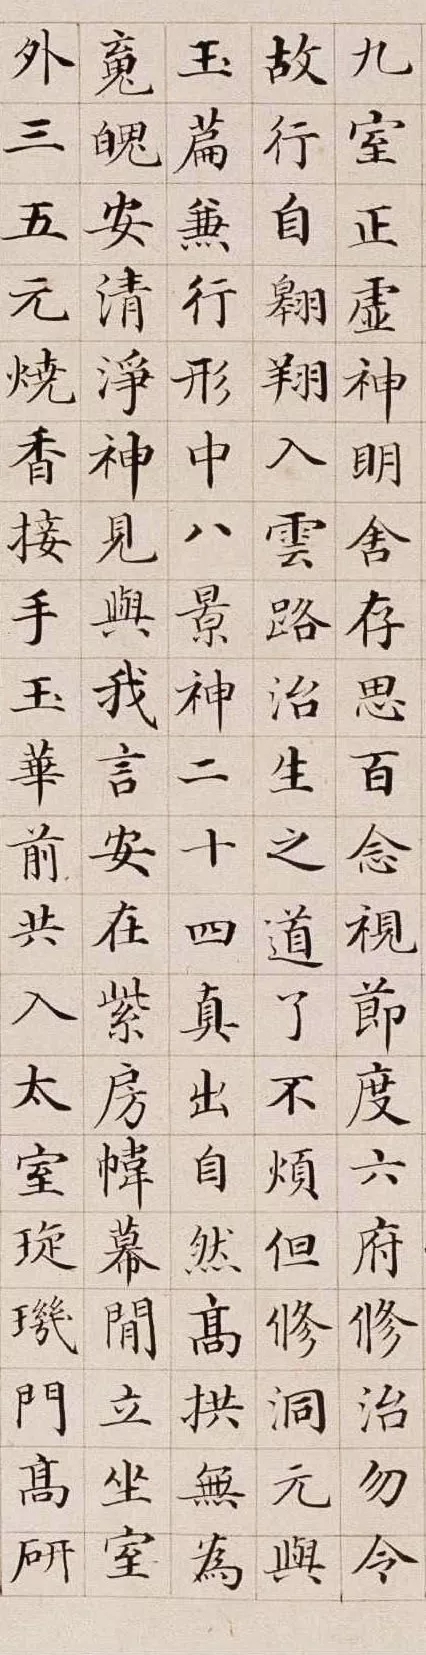 九室正虛神明舍存思百念視節度六府修治勿令
故行自翱翔入雲路治生之道了不煩但修洞元與
玉篇兼行形中八景神二十四真出自然高拱無為
䰟魄安清淨神見與我言安在紫房幃幕閒立坐室
外三五元燒香接手玉華前共入太室琁璣門高研